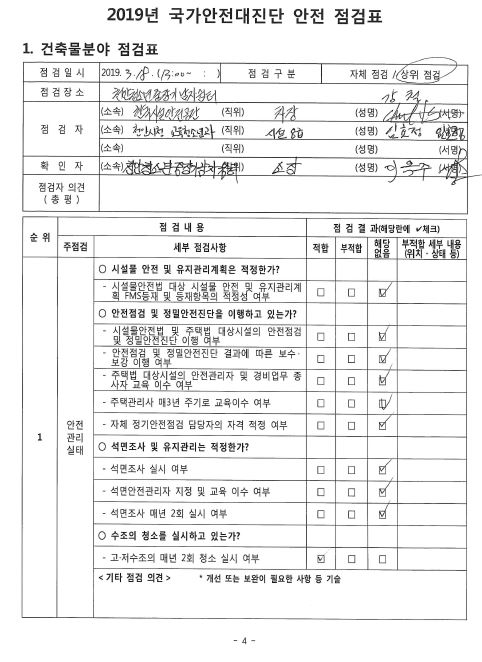 2019년 국가안전대진단 안전 점검표
1. 건축물분야 점검표
점 검 일 시 2019. 3. 18. (13:00~ : ) 점 검 구 분 자체 점검 / 상위 점검
점 검 장 소
점 검 자
(소속) (직위) 차장 (성명) (서명)
(소속) (직위) (성명) (서명)
(소속) (직위) (성명) (서명)
확 인 자 (소속) (직위) 소장 (성명) (서명)
점검자 의견
( 총 평 )
순 위 점 검 내 용 점 검 결 과(해당란에 ✓체크)
주점검 세부 점검사항 적합 부적합 해당없음 부적합 세부 내용(위치ㆍ상태 등)
1 안전관리실태
○ 시설물 안전 및 유지관리계획은 적정한가?
- 시설물안전법 대상 시설물 안전 및 유지관리계
획 FMS등재 및 등재항목의 적정성 여부 □ □ ☑
○ 안전점검 및 정밀안전진단을 이행하고 있는가?
- 시설물안전법 및 주택법 대상시설의 안전점검
및 정밀안전진단 이행 여부 □ □ ☑
- 안전점검 및 정밀안전진단 결과에 따른 보수·
보강 이행 여부 □ □ ☑
- 주택법 대상시설의 안전관리자 및 경비업무 종
사자 교육 이수 여부 □ □ ☑
- 주택관리사 매3년 주기로 교육이수 여부 □ □ ☑
- 자체 정기안전점검 담당자의 자격 적정 여부 □ □ ☑
○ 석면조사 및 유지관리는 적정한가?
- 석면조사 실시 여부 □ □ ☑
- 석면안전관리자 지정 및 교육 이수 여부 □ □ ☑
- 석면조사 매년 2회 실시 여부 □ □ ☑
○ 수조의 청소를 실시하고 있는가?
- 고·저수조의 매년 2회 청소 실시 여부 ☑ □ □
< 기타 점검 의견 > * 개선 또는 보완이 필요한 사항 등 기술
- 4 -